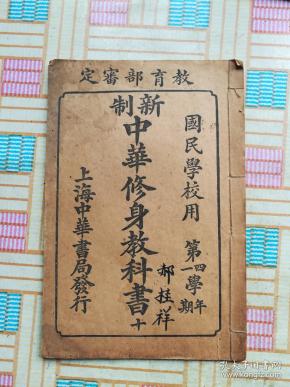 教育部審定
國民學校用
第四學年
第一學期
郝桂祥
新制
中華修身教科書十
上海中華書局發行